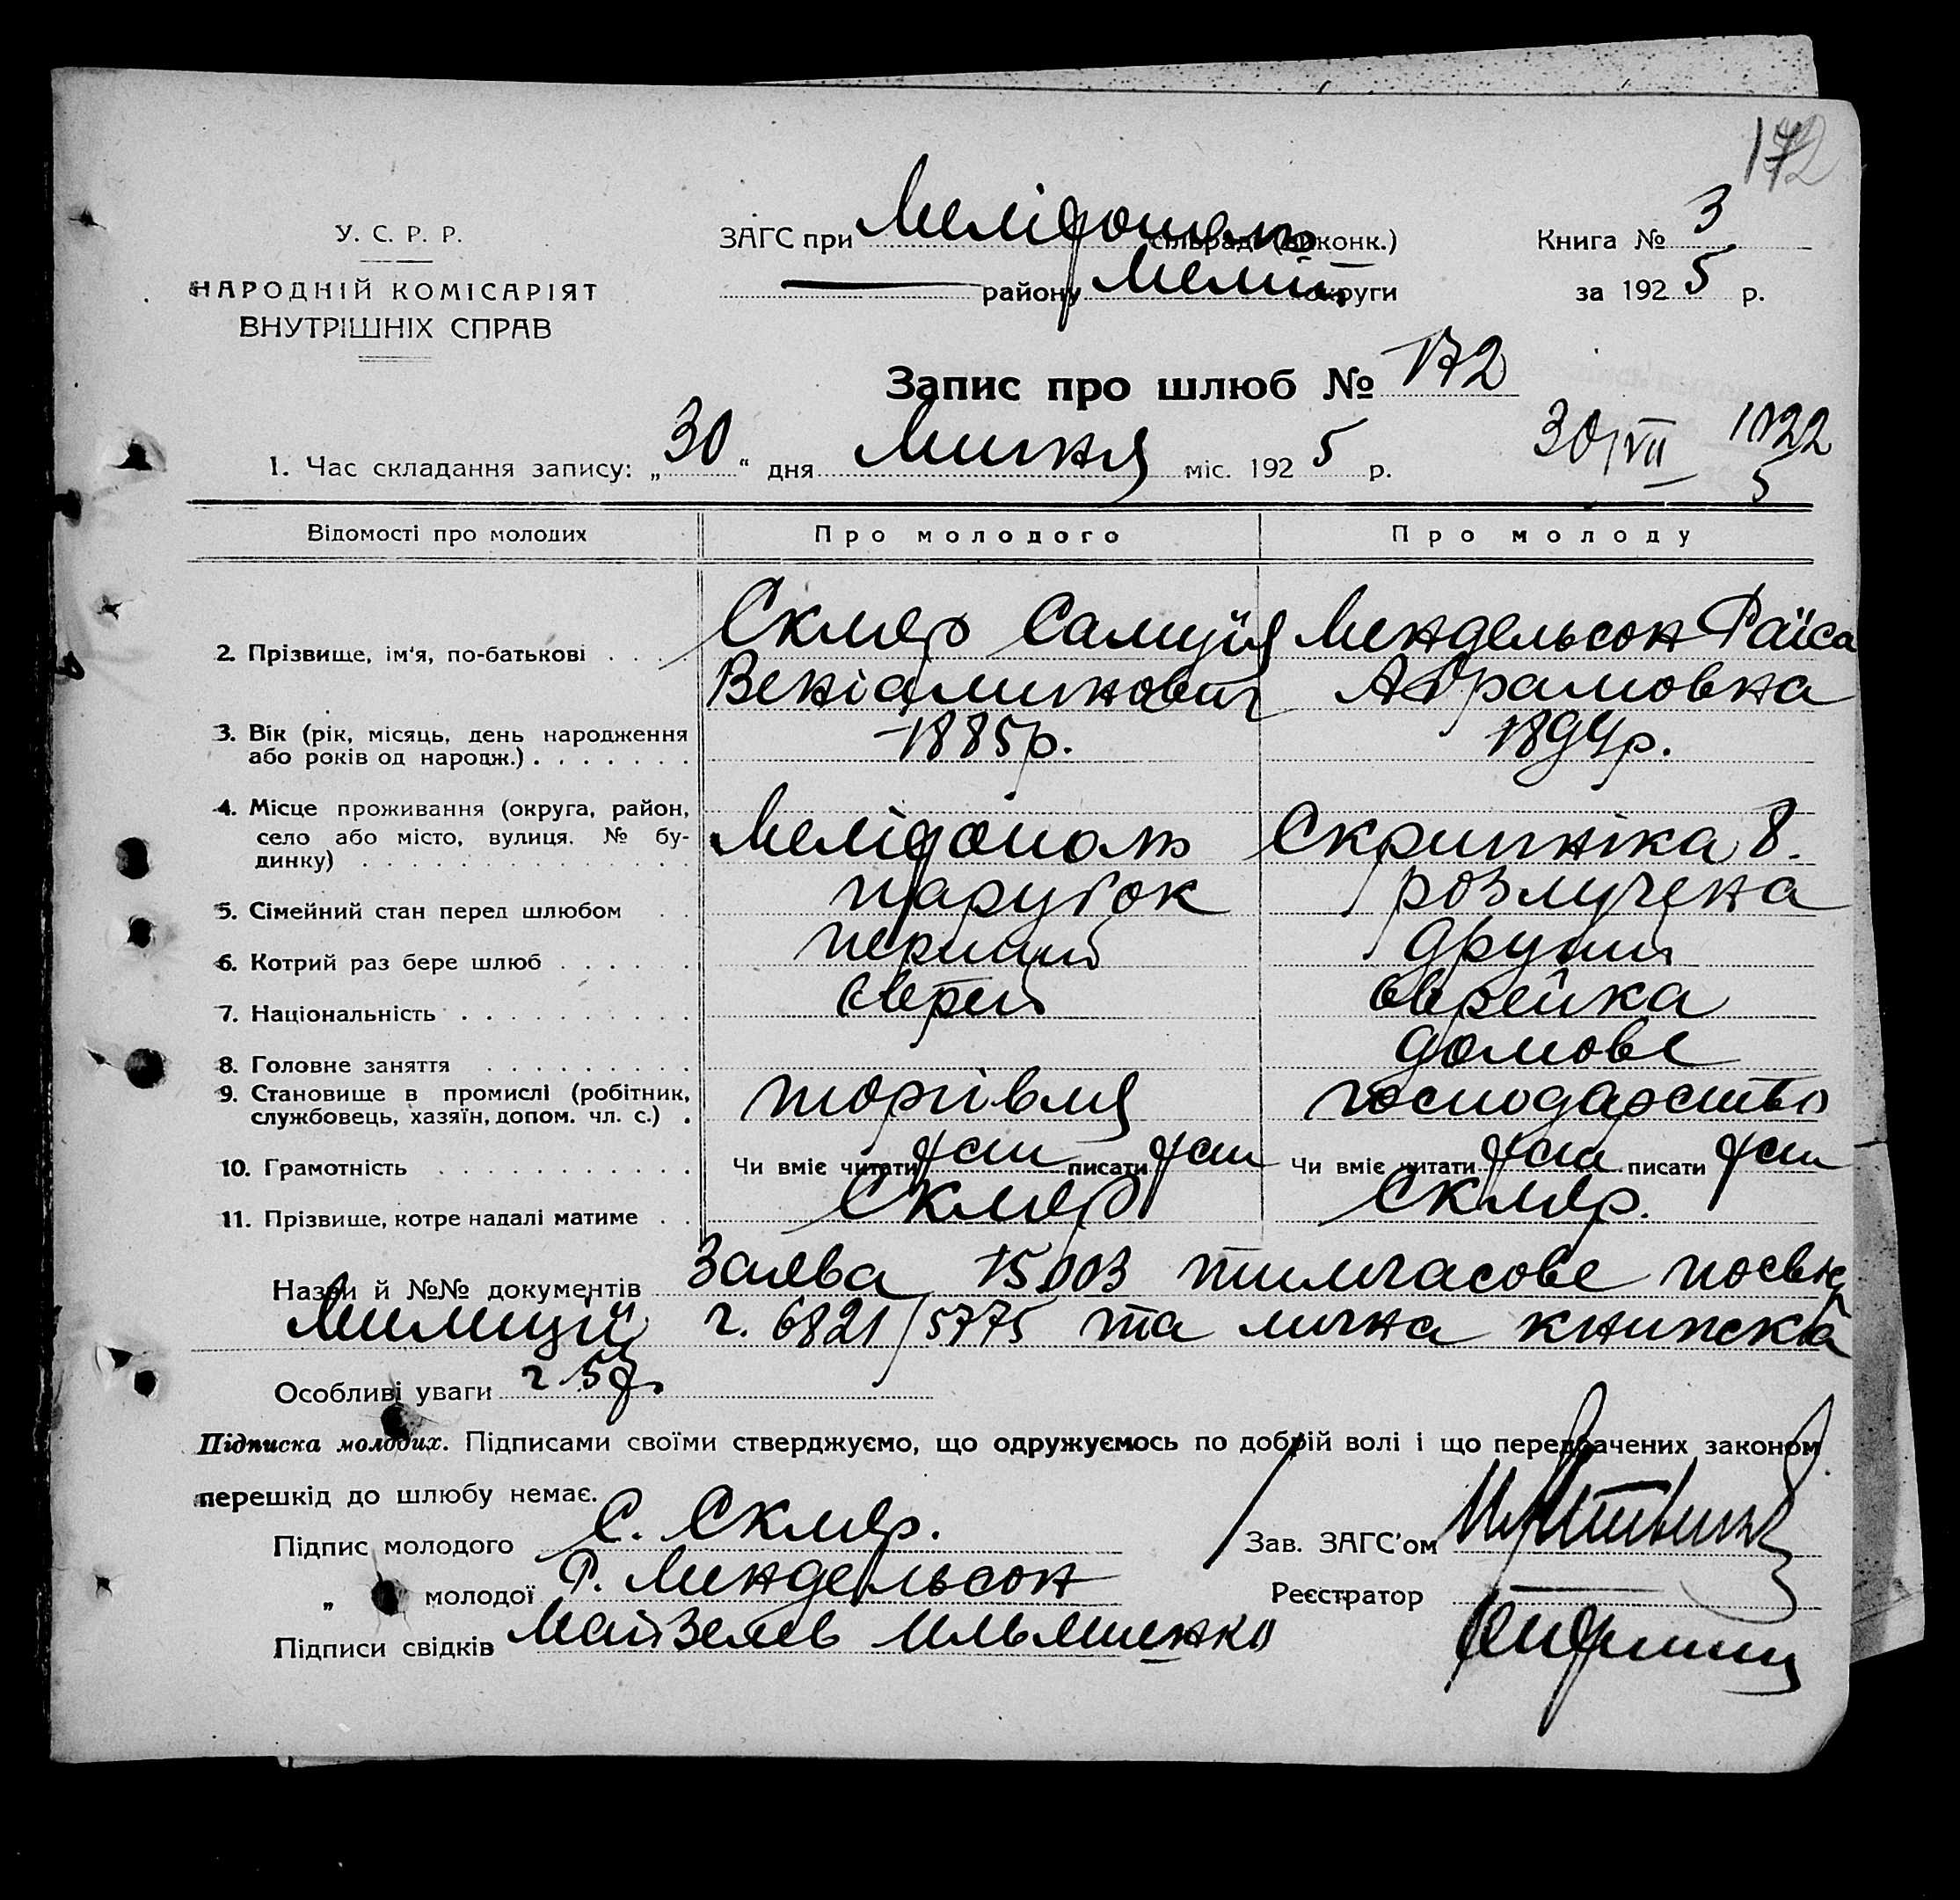 172
У. С. Р. Р.
НАРОДНІЙ КОМІСАРІЯТ
ВНУТРІШНІХ СПРАВ
ЗАГС при Мелітополь сільраді (виконк.)
району Меліт. округи
Книга № 3
за 1925 р.
Запис про шлюб № 172
1. Час складання запису: „30“ дня Липня міс. 1925 р.
30/VII
Відомості про молодих Про молодого Про молоду
2. Прізвище, ім'я, по-батькові . . . . Скляр Самуїл Веніамінович Мендельсон Раїса Абрамовна
3. Вік (рік, місяць, день народження
або років од народж.) . . . . . . . 1885р. 1894р.
4. Місце проживання (округа, район,
село або місто, вулиця. № бу-
динку) . . . . . . . . . . . . Мелітополь Скрипніка 8.
5. Сімейний стан перед шлюбом . . парубок розлучена
6. Котрий раз бере шлюб . . . . . перший другий
7. Національність . . . . . . . . . єврей єврейка
8. Головне заняття . . . . . . . . . домове
9. Становище в промислі (робітник,
службовець, хазяїн, допом. чл. с.) . торгівля господарство
10. Грамотність . . . . . . . . . . . Чи вміє читати так писати так Чи вміє читати так писати так
11. Прізвище, котре надалі матиме . . Скляр Скляр.
Назви й №№ документів Заява 15003 тимчасове посвід
Милиції ч. 6821/5775 та лична книжка
Особливі уваги ч 57
Підписка молодих. Підписами своїми стверджуємо, що одружуємось по добрій волі і що передбачених законом
перешкід до шлюбу немає.
Підпис молодого С. Скляр.
Зав. ЗАГС'ом
„ молодої Р. Мендельсон
Реєстратор
Підписи свідків